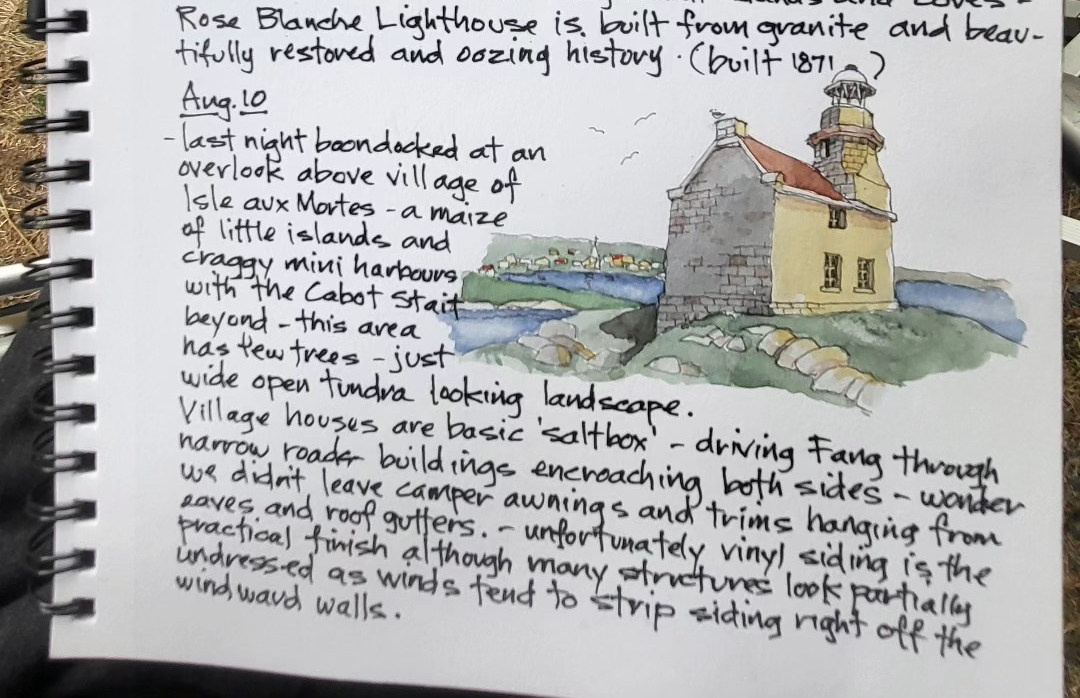 islands and coves -
Rose Blanche Lighthouse is built from granite and beau-
tifully restored and oozing history. (built 1871)
Aug. 10
- last night boondocked at an
overlook above village of
Isle aux Mortes - a maize
of little islands and
craggy mini harbours
with the Cabot Stait
beyond - this area
has few trees - just
wide open tundra looking landscape.
Village houses are basic 'saltbox' - driving Fang through
narrow roads buildings encroaching both sides - wonder
we didn't leave camper awnings and trims hanging from
eaves and roof gutters. - unfortunately vinyl siding is the
practical finish although many structures look partially
undressed as winds tend to strip siding right off the
windward walls.